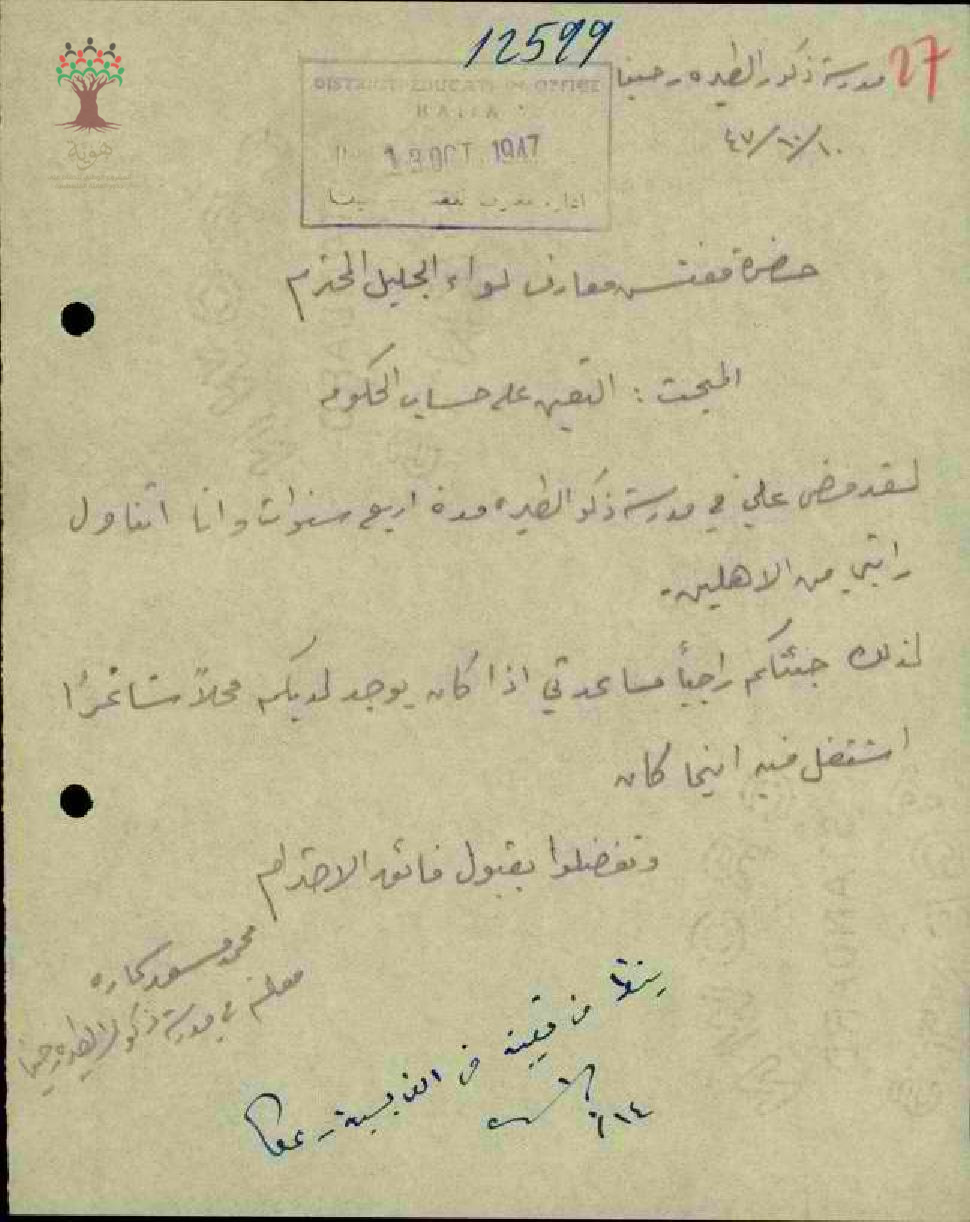 12599
27
مدرسة ذكور الطيره - حيفا
١٠/١٠/٤٧
DISTRICT EDUCATION OFFICE
HAIFA
13 OCT 1947
ادارة معارف حيفا
هوية
حضرة مفتش معارف لواء الجليل المحترم
المبحث : التعين على حساب الحكومه
لقد مضى علي في مدرسة ذكور الطيره مدة اربع سنوات وانا اتناول
راتبي من الاهلين.
لذلك جئتكم راجياً مساعدتي اذا كان يوجد لديكم محلاً شاغراً
اشتغل فيه اينما كان
وتفضلوا بقبول فائق الاحترام
محمد
معلم في مدرسة ذكور الطيره حيفا
ينظر في تعيينه في
١٤/١٠